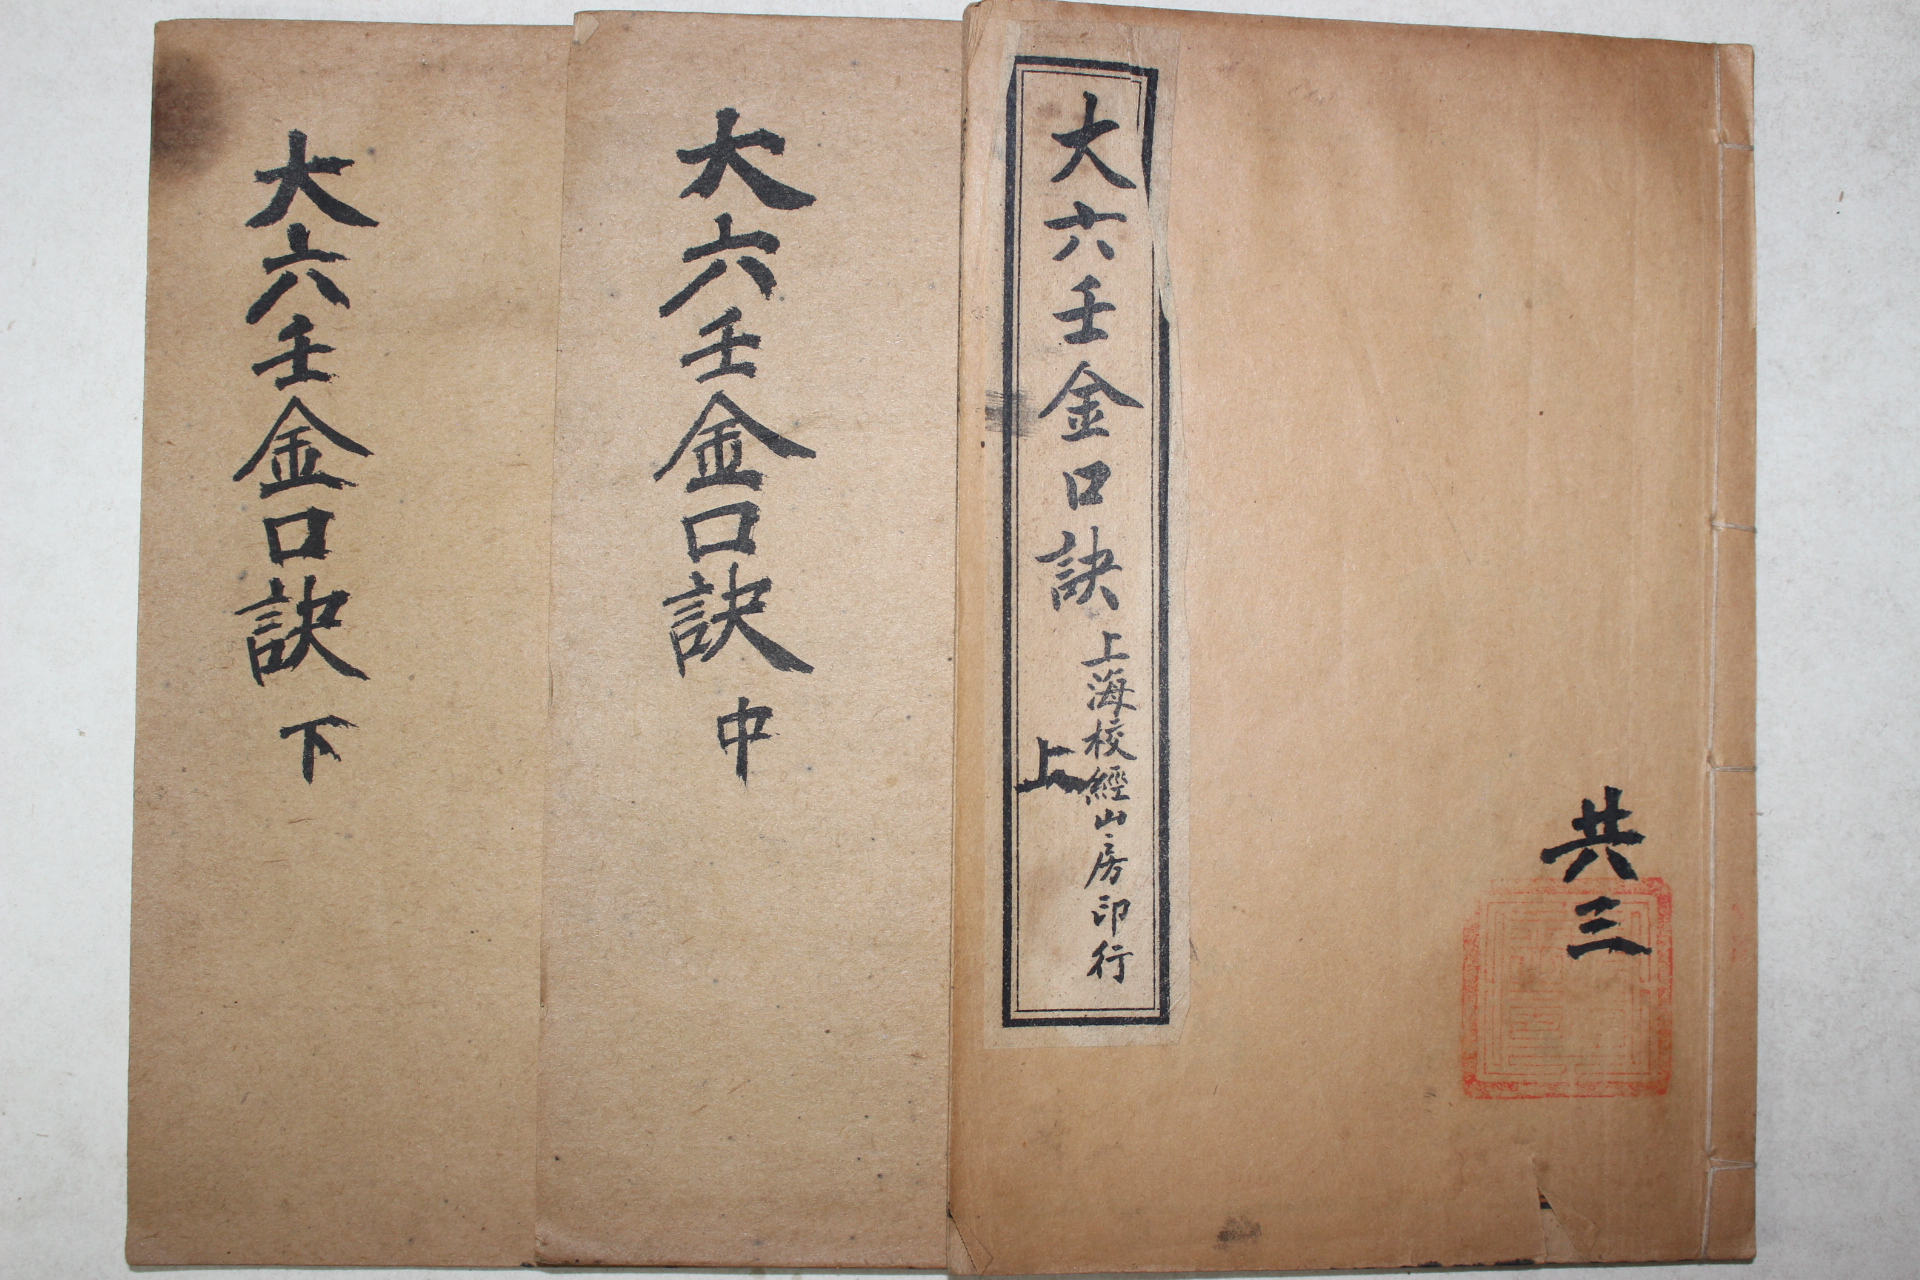 共三
大六壬金口訣
上海校經山房印行
上
大六壬金口訣 中
大六壬金口訣 下